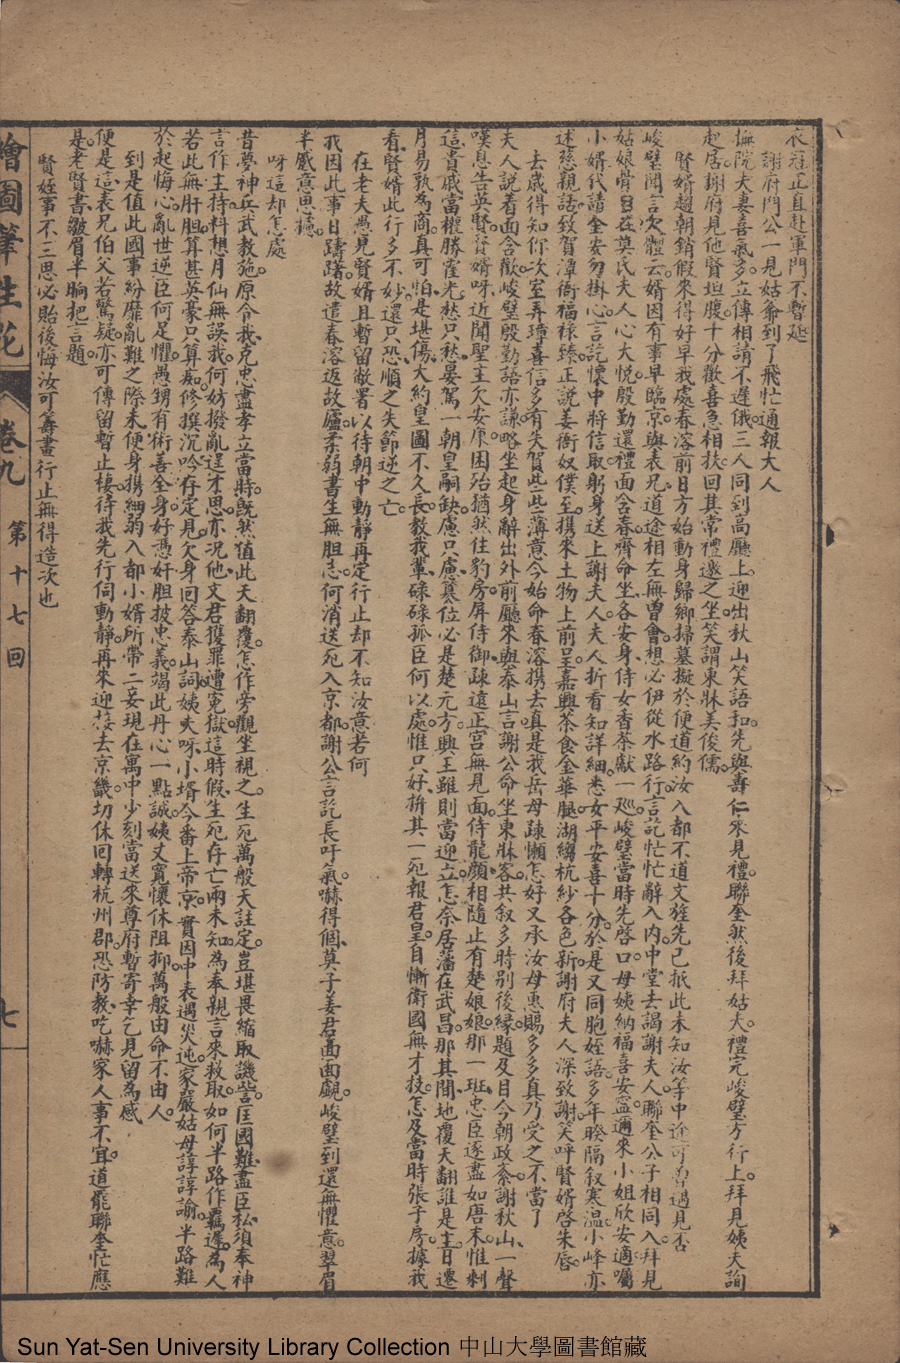 衣冠正直赴軍門不暫延
謝府門公一見姑爺到了飛忙通報大人
撫院夫妻喜氣多立傳相請不遲俄三人同到高廳上迎出秋山笑語和先與壽仁來見禮聯奎然後拜姑夫禮完峻璧方行上拜見姨夫詢
起居謝府見他賢坦腹十分歡喜急相扶回其常禮邀之坐笑謂東牀美俊儒
賢婿趨朝銷假來得好早我處春溶前日方始動身歸鄉掃墓擬於便道約汝入都不道文旌先已抵此未知汝等中途可曾遇見否
峻璧聞言欠體云婿因有事早臨京與表兄道途相左無曾會想必伊從水路行言訖忙忙辭入內中堂去謁謝夫人聯奎公子相同入拜見
姑娘骨肉莫氏夫人心大悅殷勤還禮面含春齊命坐各安身侍女香茶獻一巡峻璧當時先啓口母姨納福喜安寧邇來小姐欣安適囑
小婿代請金安勿掛心言訖懷中將信取躬身送上謝夫人夫人折看知詳細悉女平安喜十分於是又同胞姪語多年睽隔叙寒溫小峰亦
述慈親話致賀潭衙福祿臻正說姜衙奴僕至携來土物上前呈嘉興茶食金華腿湖縐杭紗各色新謝府夫人深致謝笑呼賢婿啓朱唇
去歲得知你次室弄璋喜信多有失賀此些薄意今始命春溶携去真是我岳母疎懶怎好又承汝母惠賜多多真乃受之不當了
夫人說着面含歡峻璧殷勤語亦謙略坐起身辭出外前廳來與泰山言謝公命坐東牀客共叙多時別後緣題及目今朝政紊謝秋山一聲
嘆息告英賢賢婿呀近聞聖主欠安康困殆猶然住豹房屏侍御疎遠正宮無見面侍龍顏相隨止有楚娘娘那一班忠臣逐盡如唐末惟剩
這貴戚當權勝霍光愁只愁晏駕一朝皇嗣缺慮只慮簒位必是楚元方興王雖則當迎立怎奈居藩在武昌那其間地覆天翻誰是主日遷
月易孰為商真可怕是堪傷大約皇圖不久長教我輩碌碌孤臣何以處惟只好拚其一死報君皇自慚衛國無才技怎及當時張子房據我
看賢婿此行多不妙還只恐順之失節逆之亡
在老夫愚見賢婿且暫留敝署以待朝中動靜再定行止却不知汝意若何
我因此事日躊躇故遣春溶返故廬柔弱書生無胆志何消送死入京都謝公言訖長吁氣嚇得個莫子姜君面面覷峻璧到還無懼意翠眉
半蹙意思議
呀這却怎處
昔夢神兵武教施原令我克忠盡孝立當時旣然值此天翻覆怎作旁觀坐視之生死萬般天註定豈堪畏縮取譏訾匡國難盡臣私須奉神
言作主持料想月仙無誤我何妨撥亂逞才思亦況他文君獲罪遭冤獄這時假生死存亡兩未知為奉親言來救取如何半路作羈遲為人
若此無肝胆算甚英豪只算痴修撰沉吟存定見欠身回答泰山詞姨夫呀小婿今番上帝京實因中表遇災迍家嚴姑母諄諄諭半路難
於起悔心亂世逆臣何足懼愚甥有術善全身好憑奸胆披忠義竭此丹心一點誠姨丈寬懷休阻抑萬般由命不由人
到是值此國事紛靡亂難之際未便身携細弱入都小婿所帶二妾現在寓中少刻當送來尊府暫寄幸乞見留為感
便是這表兄伯父若驚疑亦可傳留暫止棲待我先行伺動靜再來迎接去京畿切休回轉杭州郡恐防教吃嚇家人事不宜道罷聯奎忙應
是老賢書皺眉半晌把言題
賢姪事不三思必貽後悔汝可籌畫行止無得造次也
繪圖筆生花 卷九 第十七回 七
Sun Yat-Sen University Library Collection 中山大學圖書館藏